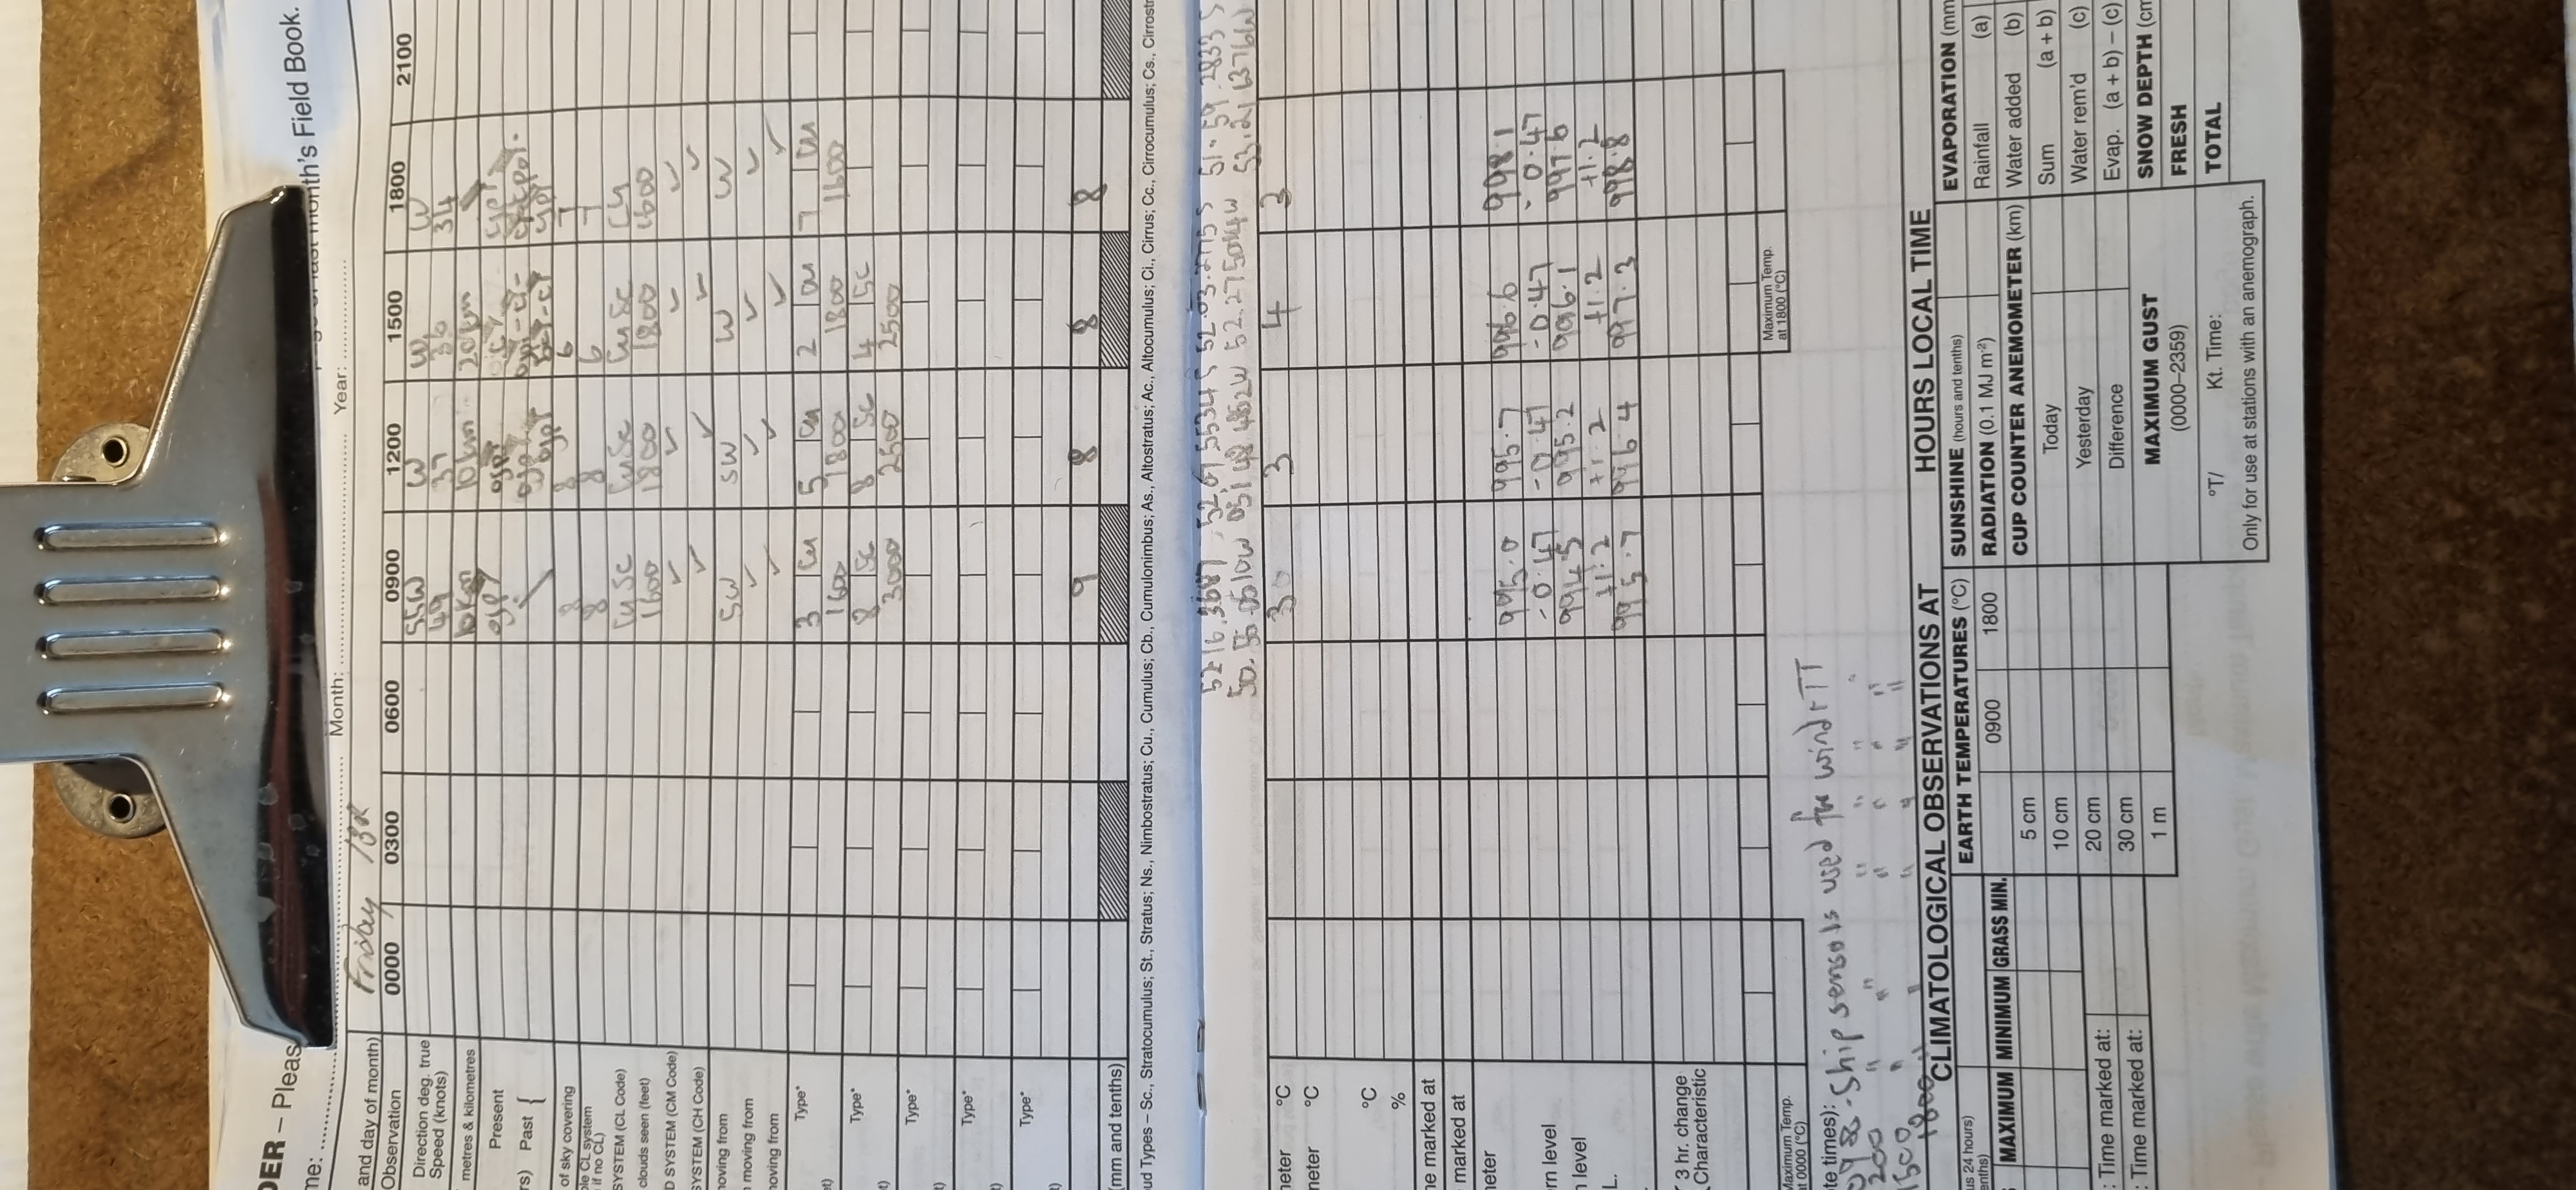 DER – Pleas
month's Field Book.
me:
Month:
Year:
and day of month)
Friday 13th
Observation 0000 0300 0600 0900 1200 1500 1800 2100
Direction deg. true SSW W W W
Speed (knots) 49 37 36 34
metres & kilometres 10km 10km 20km
Present
rs) Past {
of sky covering 8 8 6 7
ble CL system 8 8 6 7
if no CL)
SYSTEM (CL Code) CuSc CuSc CuSc Cu
clouds seen (feet) 1600 1800 1800 1600
D SYSTEM (CM Code) ✓ ✓ ✓ ✓
SYSTEM (CH Code) ✓ ✓ ✓ ✓
moving from SW SW W W
moving from ✓ ✓ ✓ ✓
moving from ✓ ✓ ✓ ✓
Type* 3 Cu 5 Cu 2 Cu 7 Cu
t) 1600 1800 1800 1600
Type* 8 Sc 8 Sc 4 Sc
t) 3000 2500 2500
Type*
t)
Type*
t)
Type*
t)
9 8 8 8
(mm and tenths)
ud Types – Sc., Stratocumulus; St., Stratus; Ns., Nimbostratus; Cu., Cumulus; Cb., Cumulonimbus; As., Altostratus; Ac., Altocumulus; Ci., Cirrus; Cc., Cirrocumulus; Cs., Cirrostr
meter °C 3 4 3
meter °C
°C
%
me marked at
marked at
meter 995.0 995.7 996.6 998.1
-0.47 -0.47 -0.47 -0.47
rn level 994.5 995.2 996.1 997.6
n level +1.2 +1.2 +1.2 +1.2
L. 995.7 996.4 997.3 998.8
3 hr. change
Characteristic
Maximum Temp.
at 0000 (°C)
Maximum Temp.
at 1800 (°C)
te times): Ship sensors used for wind + TT
1200 " " " " "
1500 " " " " "
1800 " " " "
CLIMATOLOGICAL OBSERVATIONS AT HOURS LOCAL TIME
us 24 hours)
enths)
MAXIMUM MINIMUM GRASS MIN.
: Time marked at:
: Time marked at:
EARTH TEMPERATURES (°C)
0900 1800
5 cm
10 cm
20 cm
30 cm
1 m
SUNSHINE (hours and tenths)
RADIATION (0.1 MJ m-2)
CUP COUNTER ANEMOMETER (km)
Today
Yesterday
Difference
MAXIMUM GUST
(0000–2359)
°T/ Kt. Time:
Only for use at stations with an anemograph.
EVAPORATION (mm
Rainfall (a)
Water added (b)
Sum (a + b)
Water rem'd (c)
Evap. (a + b) – (c)
SNOW DEPTH (cm
FRESH
TOTAL